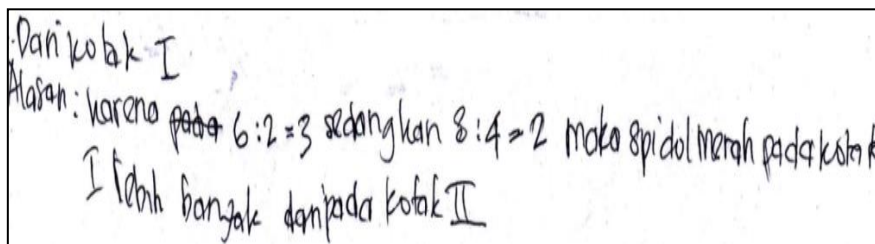 Dari kotak I
Alasan: karena pada 6:2=3 sedangkan 8:4=2 maka spidol merah pada kotak
I lebih banyak daripada kotak II